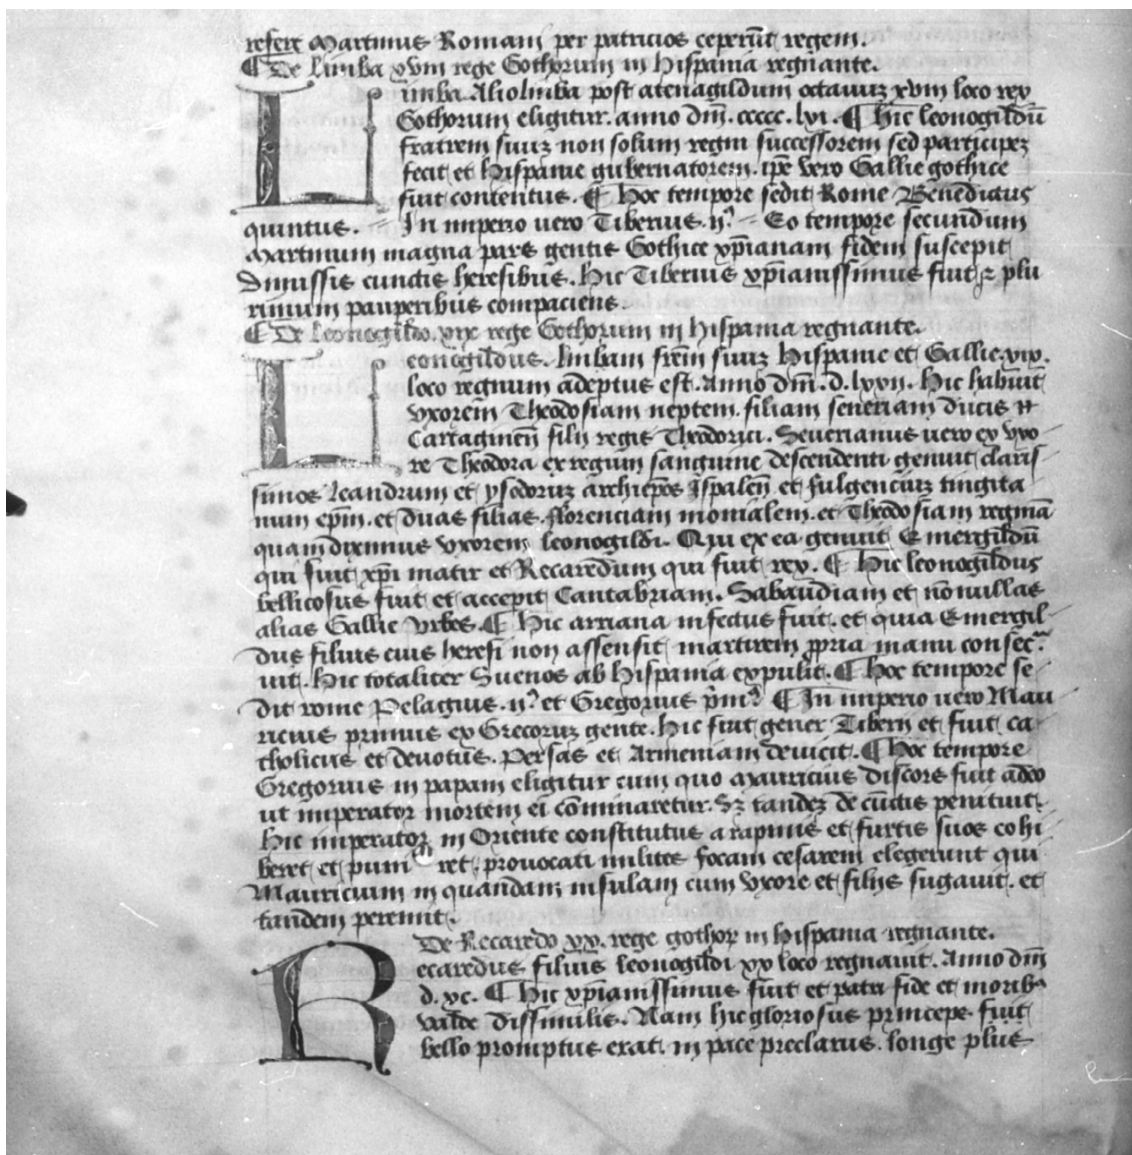 refert Martinus Romani per patricios ceperūt regem.
¶ De Limba xvɪɪɪ rege Gothorum in Hispania regnante.
Limba Aliolimba post atenagildum octauuꝫ xvɪɪɪ loco rex
Gothorum eligitur. anno dn̄ɪ. ccccc. lxɪ. ¶ Hic leonogildū
fratrem suuꝫ non solum regni successorem sed participeꝫ
fecit et Hispanie gubernatorem. ip̄e vero Gallie gothice
fuit contentus. ¶ Hoc tempore sedit Rome Benedictus
quintus. In imperio uero Tiberius. ij.º Eo tempore secundum
Martinum magna pars gentis Gothice xp̄ianam fidem suscepit
Dimissis cunctis heresibus. Hic Tiberius xp̄ianissimus fuit ꝫ plu
rimum pauperibus compaciens.
¶ De Leonogildo. xɪx rege Gothorum in Hispania regnante.
Leonogildus. limbam frēm suuꝫ Hispanie et Gallie. xɪx.
loco regnum adeptus est. Anno dn̄ɪ. d. lxvɪɪ. Hic habuit
vxorem Theodosiam neptem. filiam seueriani ducis
Cartaginen̄ filij regis Theodorici. Seuerianus uero ex vxo
re Theodora ex regum sanguine descendenti genuit claris
simos leandrum et ysodoruꝫ archiep̄os Ispalen̄ et fulgenciuꝫ tingita
num ep̄m. et duas filias. florenciam monialem. et Theodosiam reginā
quam diximus vxorem leonogildi. Qui ex ea genuit Emergildū
qui fuit xp̄i matir et Recaredum qui fuit rex. ¶ Hic leonogildus
bellicosus fuit et accepit Cantabriam. Sabaudiam et nōnullas
alias Gallie vrbes. ¶ Hic arriana infectus fuit. et quia Emergil
dus filius eius heresi non assensit martirem p̄pria manu consec̄ra
uit. Hic totaliter Sueuos ab Hispania expulit. ¶ Hoc tempore se
dit rome Pelagius. ij.º et Gregorius p̄m.º ¶ In imperio uero Mau
ricius primus ex Grecoruꝫ gente. Hic fuit gener Tiberij et fuit ca
tholicus et deuotus. Persas et Armeniam deuicit. ¶ Hoc tempore
Gregorius in papam eligitur cum quo Mauricius discors fuit adeo
ut imperator mortem ei cōminaretur. Sꝫ tandeꝫ de cūctis penituit.
Hic imperator in Oriente constitutus a rapinis et furtis suos cohi
beret et puni ret. prouocati milites focam cesarem elegerunt qui
Mauricium in quandam insulam cum vxore et filijs fugauit. et
tandem peremit.
De Recaredo xx. rege gothoꝝ in Hispania regnante.
Recaredus filius leonogildi xx loco regnauit. Anno dn̄ɪ
d. xc. ¶ Hic xp̄ianissimus fuit et patri fide et morib9
valde dissimilis. Nam hic gloriosus princeps fuit
bello promptus erat. in pace preclarus. longe plus